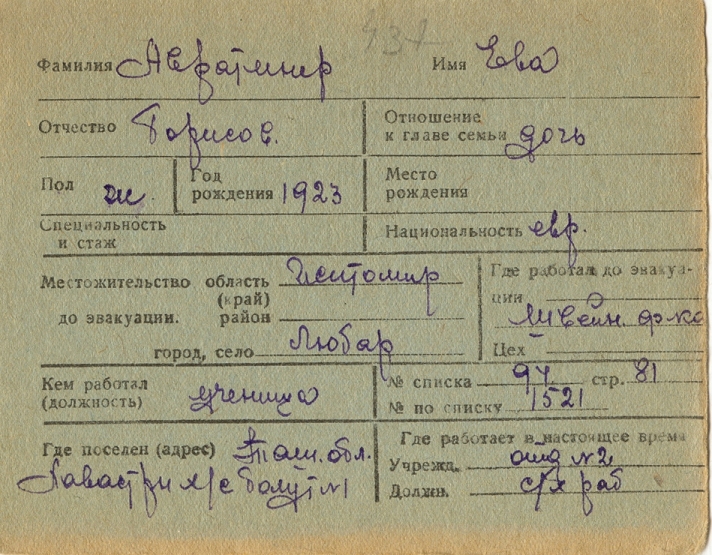 437
Фамилия Авратинер Имя Ева
Отчество Борисов. Отношение к главе семьи дочь
Пол ж. Год рождения 1923 Место рождения
Специальность и стаж Национальность евр.
Местожительство область Житомир
(край)
до эвакуации. район
город, село Любар
Где работал до эвакуа-
ции Швейн. ф-ка
Цех
Кем работал
(должность) ученица
№ списка 94 стр. 81
№ по списку 1521
Где поселен (адрес) Таш. обл.
с/с №1
Где работает в настоящее время
Учрежд. отд №2
Должн. с/х раб